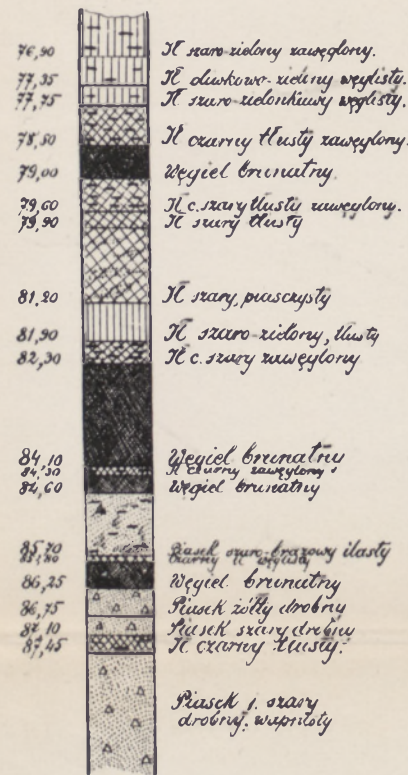 76,90 Ił szaro-zielony zawęglony.
77,35 Ił zielony węglisty.
77,75 Ił szaro-zielonkawy węglisty.
78,50 Ił czarny tłusty zawęglony.
79,00 Węgiel brunatny.
79,60 Ił c. szary tłusty zawęglony.
79,90 Ił szary tłusty
81,20 Ił szary, piasczysty
81,90 Ił szaro-zielony, tłusty
82,30 Ił c. szary zawęglony
84,10 Węgiel brunatny
84,30 Ił czarny zawęglony
84,60 Węgiel brunatny
85,70 Piasek szaro-brązowy ilasty
czarny ił węglisty
86,25 Węgiel brunatny
86,75 Piasek żółty drobny
87,10 Piasek szary drobny
87,45 Ił czarny tłusty.
Piasek j. szary
drobny, wapnisty